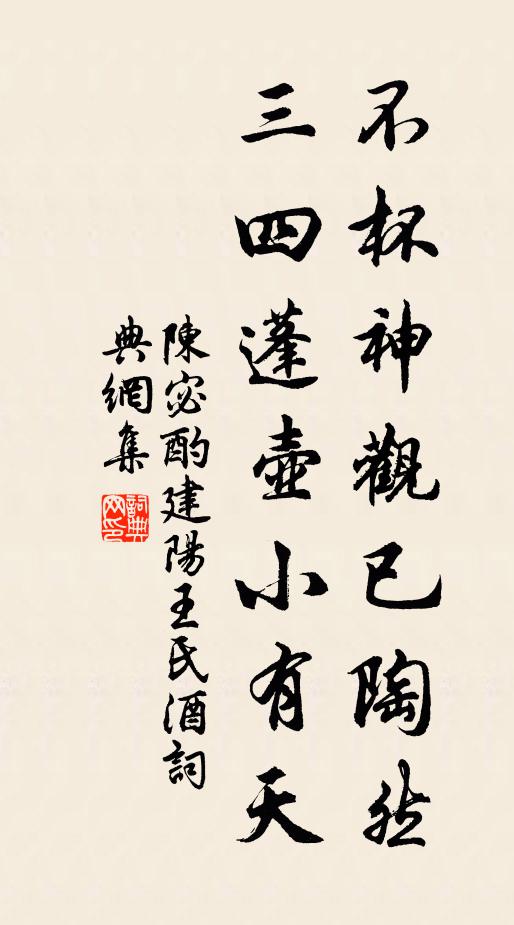 不杯神觀已陶然
三四蓬壺小有天
陳宓酌建陽王氏酒詞
典網集
詞典
网印